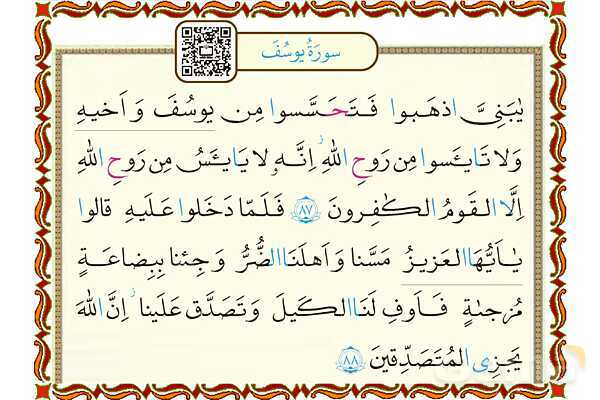 سورَةُ يوسُفَ
يٰبَنِىَّ اذهَبوا فَتَحَسَّسوا مِن يوسُفَ وَ اَخيهِ
وَ لا تَايـَٔسوا مِن رَوحِ اللهِ ۖ اِنَّهٗ لا يَايـَٔسُ مِن رَوحِ اللهِ
اِلَّا القَومُ الكٰفِرونَ ﴿٨٧﴾ فَلَمّا دَخَلوا عَلَيهِ قالوا
يٰاَيُّهَا العَزيزُ مَسَّنا وَ اَهلَنَا الضُّرُّ وَ جِئنا بِبِضاعَةٍ
مُزجىٰةٍ فَاَوفِ لَنَا الكَيلَ وَ تَصَدَّق عَلَينا ۖ اِنَّ اللهَ
يَجزِى المُتَصَدِّقينَ ﴿٨٨﴾